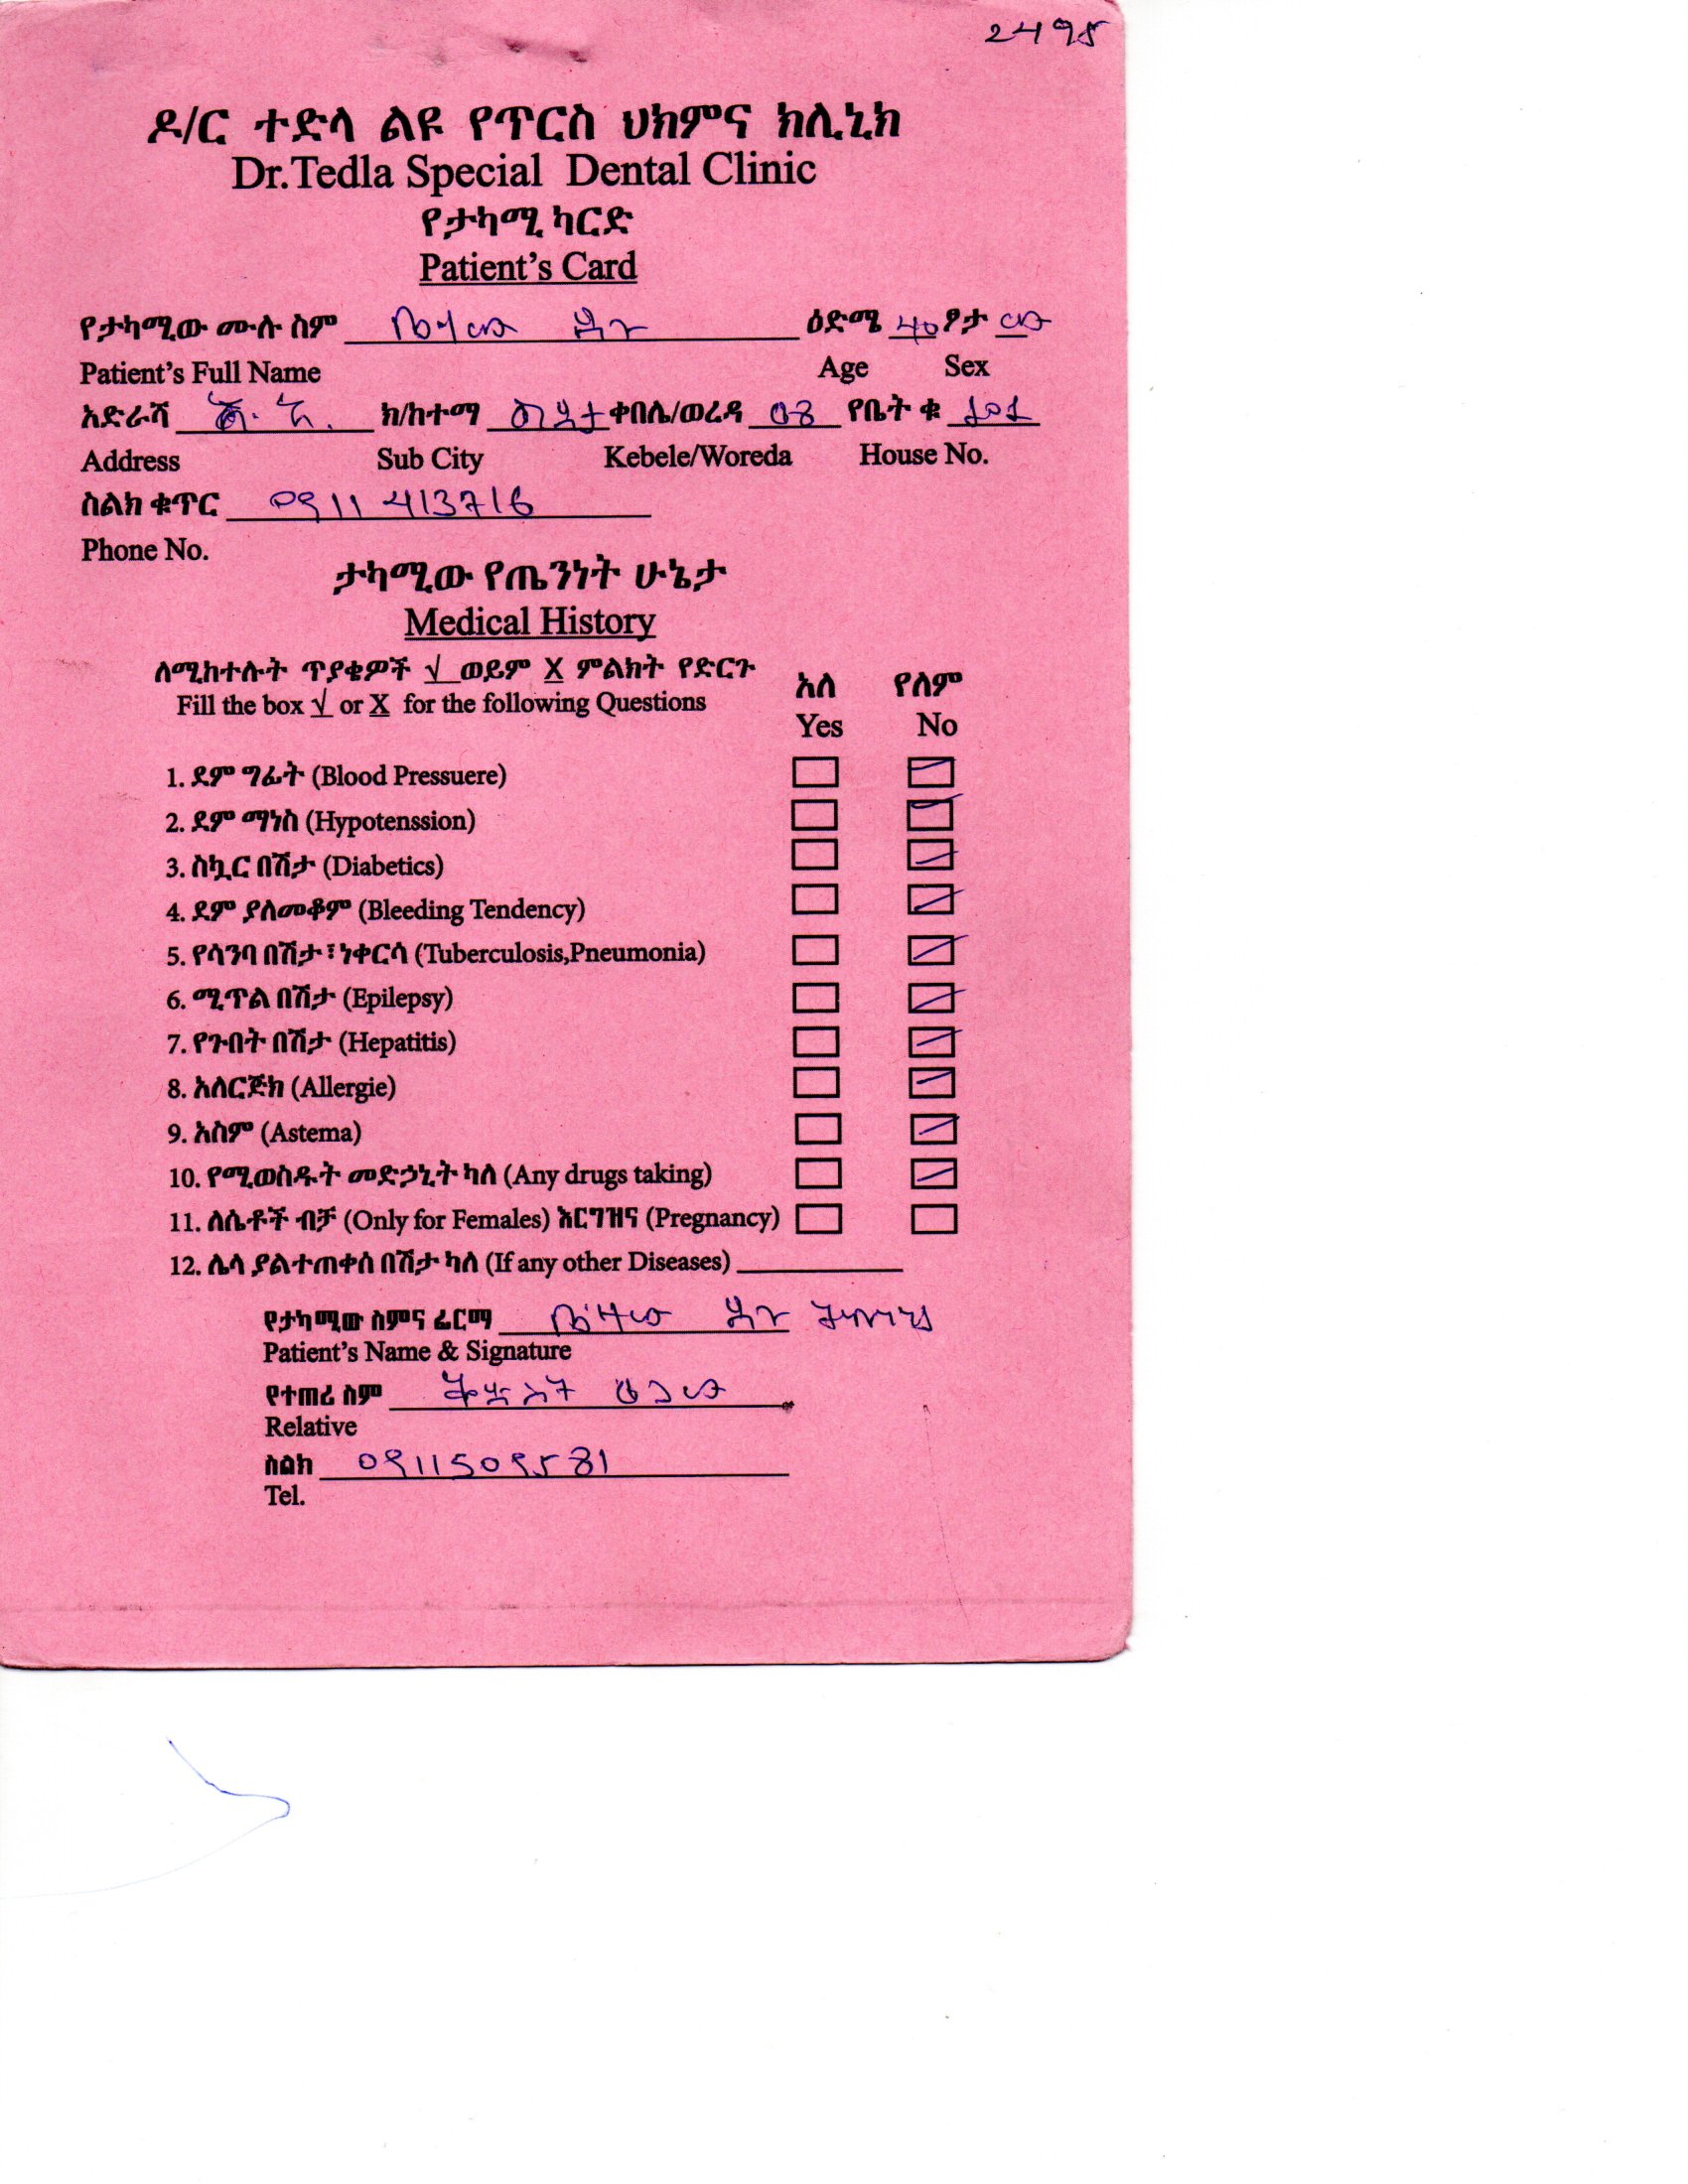 2495
ዶ/ር ተድላ ልዩ የጥርስ ህክምና ክሊኒክ
Dr.Tedla Special Dental Clinic
የታካሚ ካርድ
Patient's Card
የታካሚው ሙሉ ስም ዕድሜ 40 ፆታ ወ
Patient's Full Name Age Sex
አድራሻ ክ/ከተማ ቀበሌ/ወረዳ 08 የቤት ቁ
Address Sub City Kebele/Woreda House No.
ስልክ ቁጥር 0911 413716
Phone No.
ታካሚው የጤንነት ሁኔታ
Medical History
ለሚከተሉት ጥያቄዎች √ ወይም X ምልክት የድርጉ
Fill the box √ or X for the following Questions
አለ የለም
Yes No
1. ደም ግፊት (Blood Pressuere)
2. ደም ማነስ (Hypotenssion)
3. ስኳር በሽታ (Diabetics)
4. ደም ያለመቆም (Bleeding Tendency)
5. የሳንባ በሽታ፣ነቀርሳ (Tuberculosis,Pneumonia)
6. ሚጥል በሽታ (Epilepsy)
7. የጉበት በሽታ (Hepatitis)
8. አለርጅክ (Allergie)
9. አስም (Astema)
10. የሚወስዱት መድኃኒት ካለ (Any drugs taking)
11. ለሴቶች ብቻ (Only for Females) እርግዝና (Pregnancy)
12. ሌላ ያልተጠቀሰ በሽታ ካለ (If any other Diseases)
የታካሚው ስምና ፊርማ
Patient's Name & Signature
የተጠሪ ስም
Relative
ስልክ 0911509581
Tel.